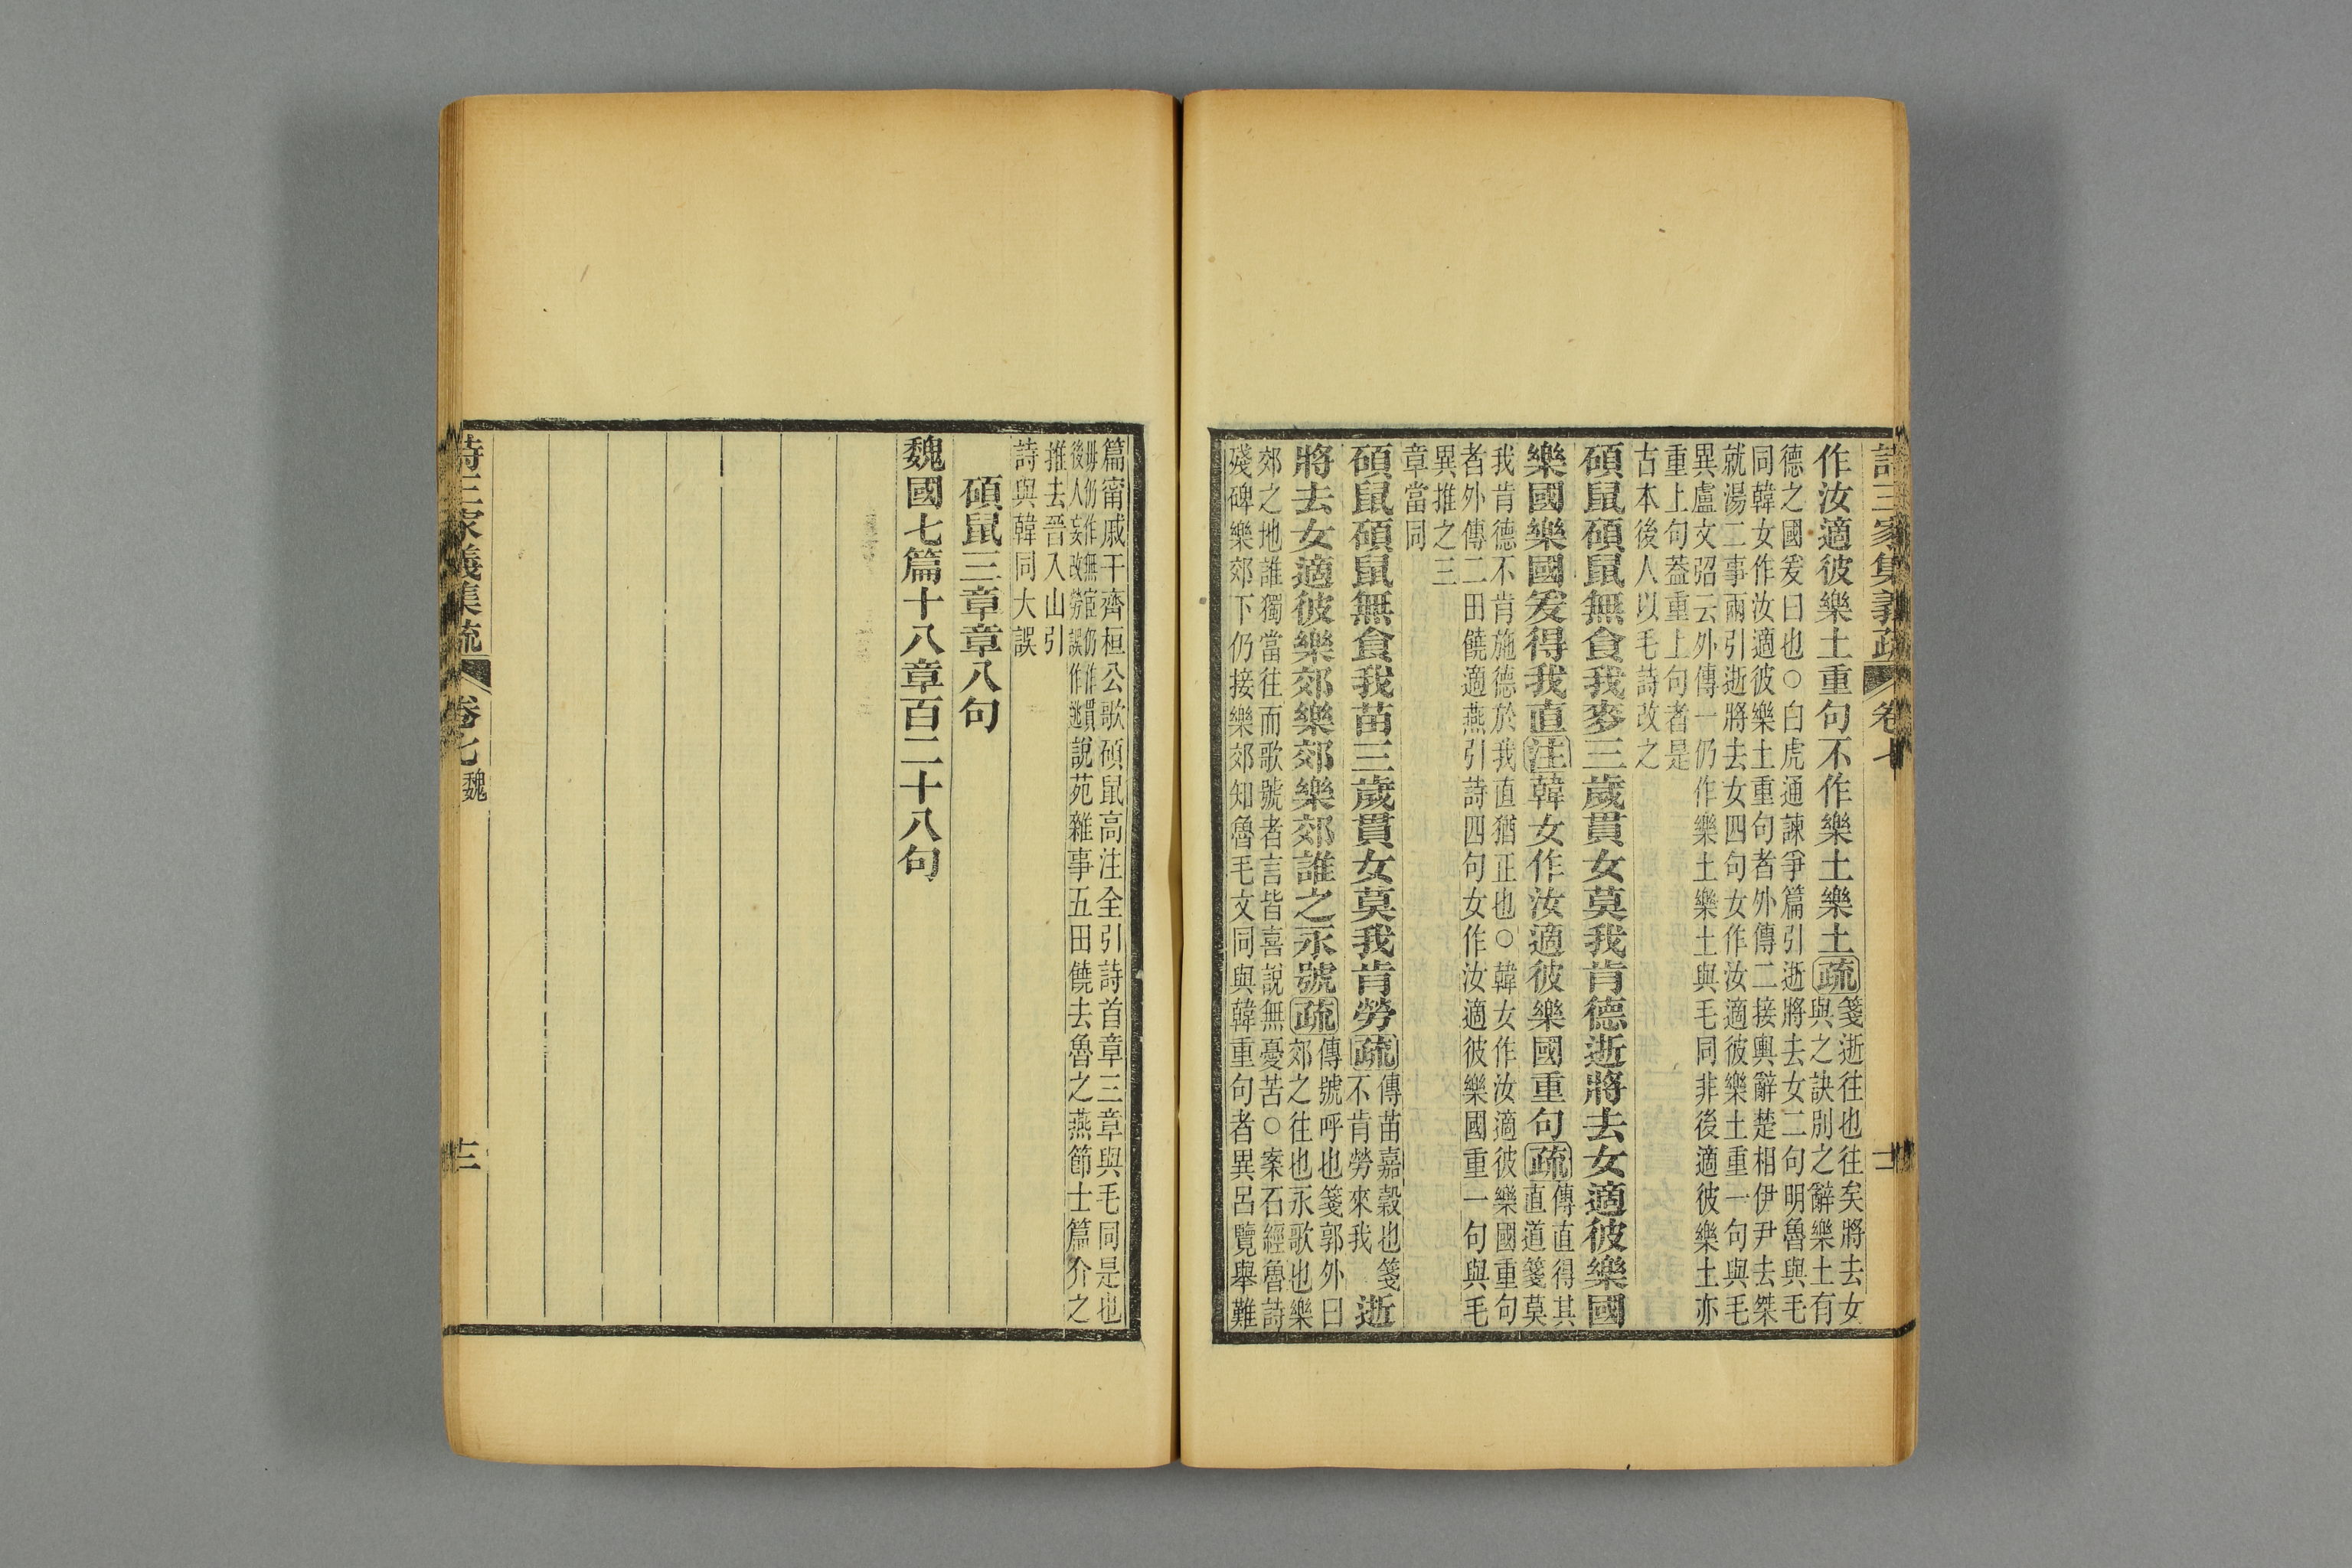 三家集義疏 卷七
作汝適彼樂土重句不作樂土樂土疏箋逝往也往矣將去女
與之訣別之辭樂土有
德之國爰曰也○白虎通諫爭篇引逝將去女二句明魯與毛
同韓女作汝適彼樂土重句者外傳二接輿辭楚相伊尹去桀
就湯二事兩引逝將去女四句女作汝適彼樂土重一句與毛
異盧文弨云外傳一仍作樂土樂土與毛同非後適彼樂土亦
重上句葢重上句者是
古本後人以毛詩改之
碩鼠碩鼠無食我麥三歲貫女莫我肯德逝將去女適彼樂國
樂國樂國爰得我直注韓女作汝適彼樂國重句疏傳直得其
直道箋莫
我肯德不肯施德於我直猶正也○韓女作汝適彼樂國重句
者外傳二田饒適燕引詩四句女作汝適彼樂國重一句與毛
異推之三
章當同
碩鼠碩鼠無食我苗三歲貫女莫我肯勞疏傳苗嘉穀也箋
不肯勞來我
逝
將去女適彼樂郊樂郊樂郊誰之永號疏傳號呼也箋郭外曰
郊之往也永歌也樂
郊之地誰獨當往而歌號者言皆喜說無憂苦○案石經魯詩
殘碑樂郊下仍接樂郊知魯毛文同與韓重句者異呂覽舉難
篇甯戚干齊桓公歌碩鼠高注全引詩首章三章與毛同是也
毋仍作無宦仍作貫
後人妄改勞誤作逃
說苑雜事五田饒去魯之燕節士篇介之
推去晉入山引
詩與韓同大誤
碩鼠三章章八句
魏國七篇十八章百二十八句
詩三家義集疏 卷七 魏 十三